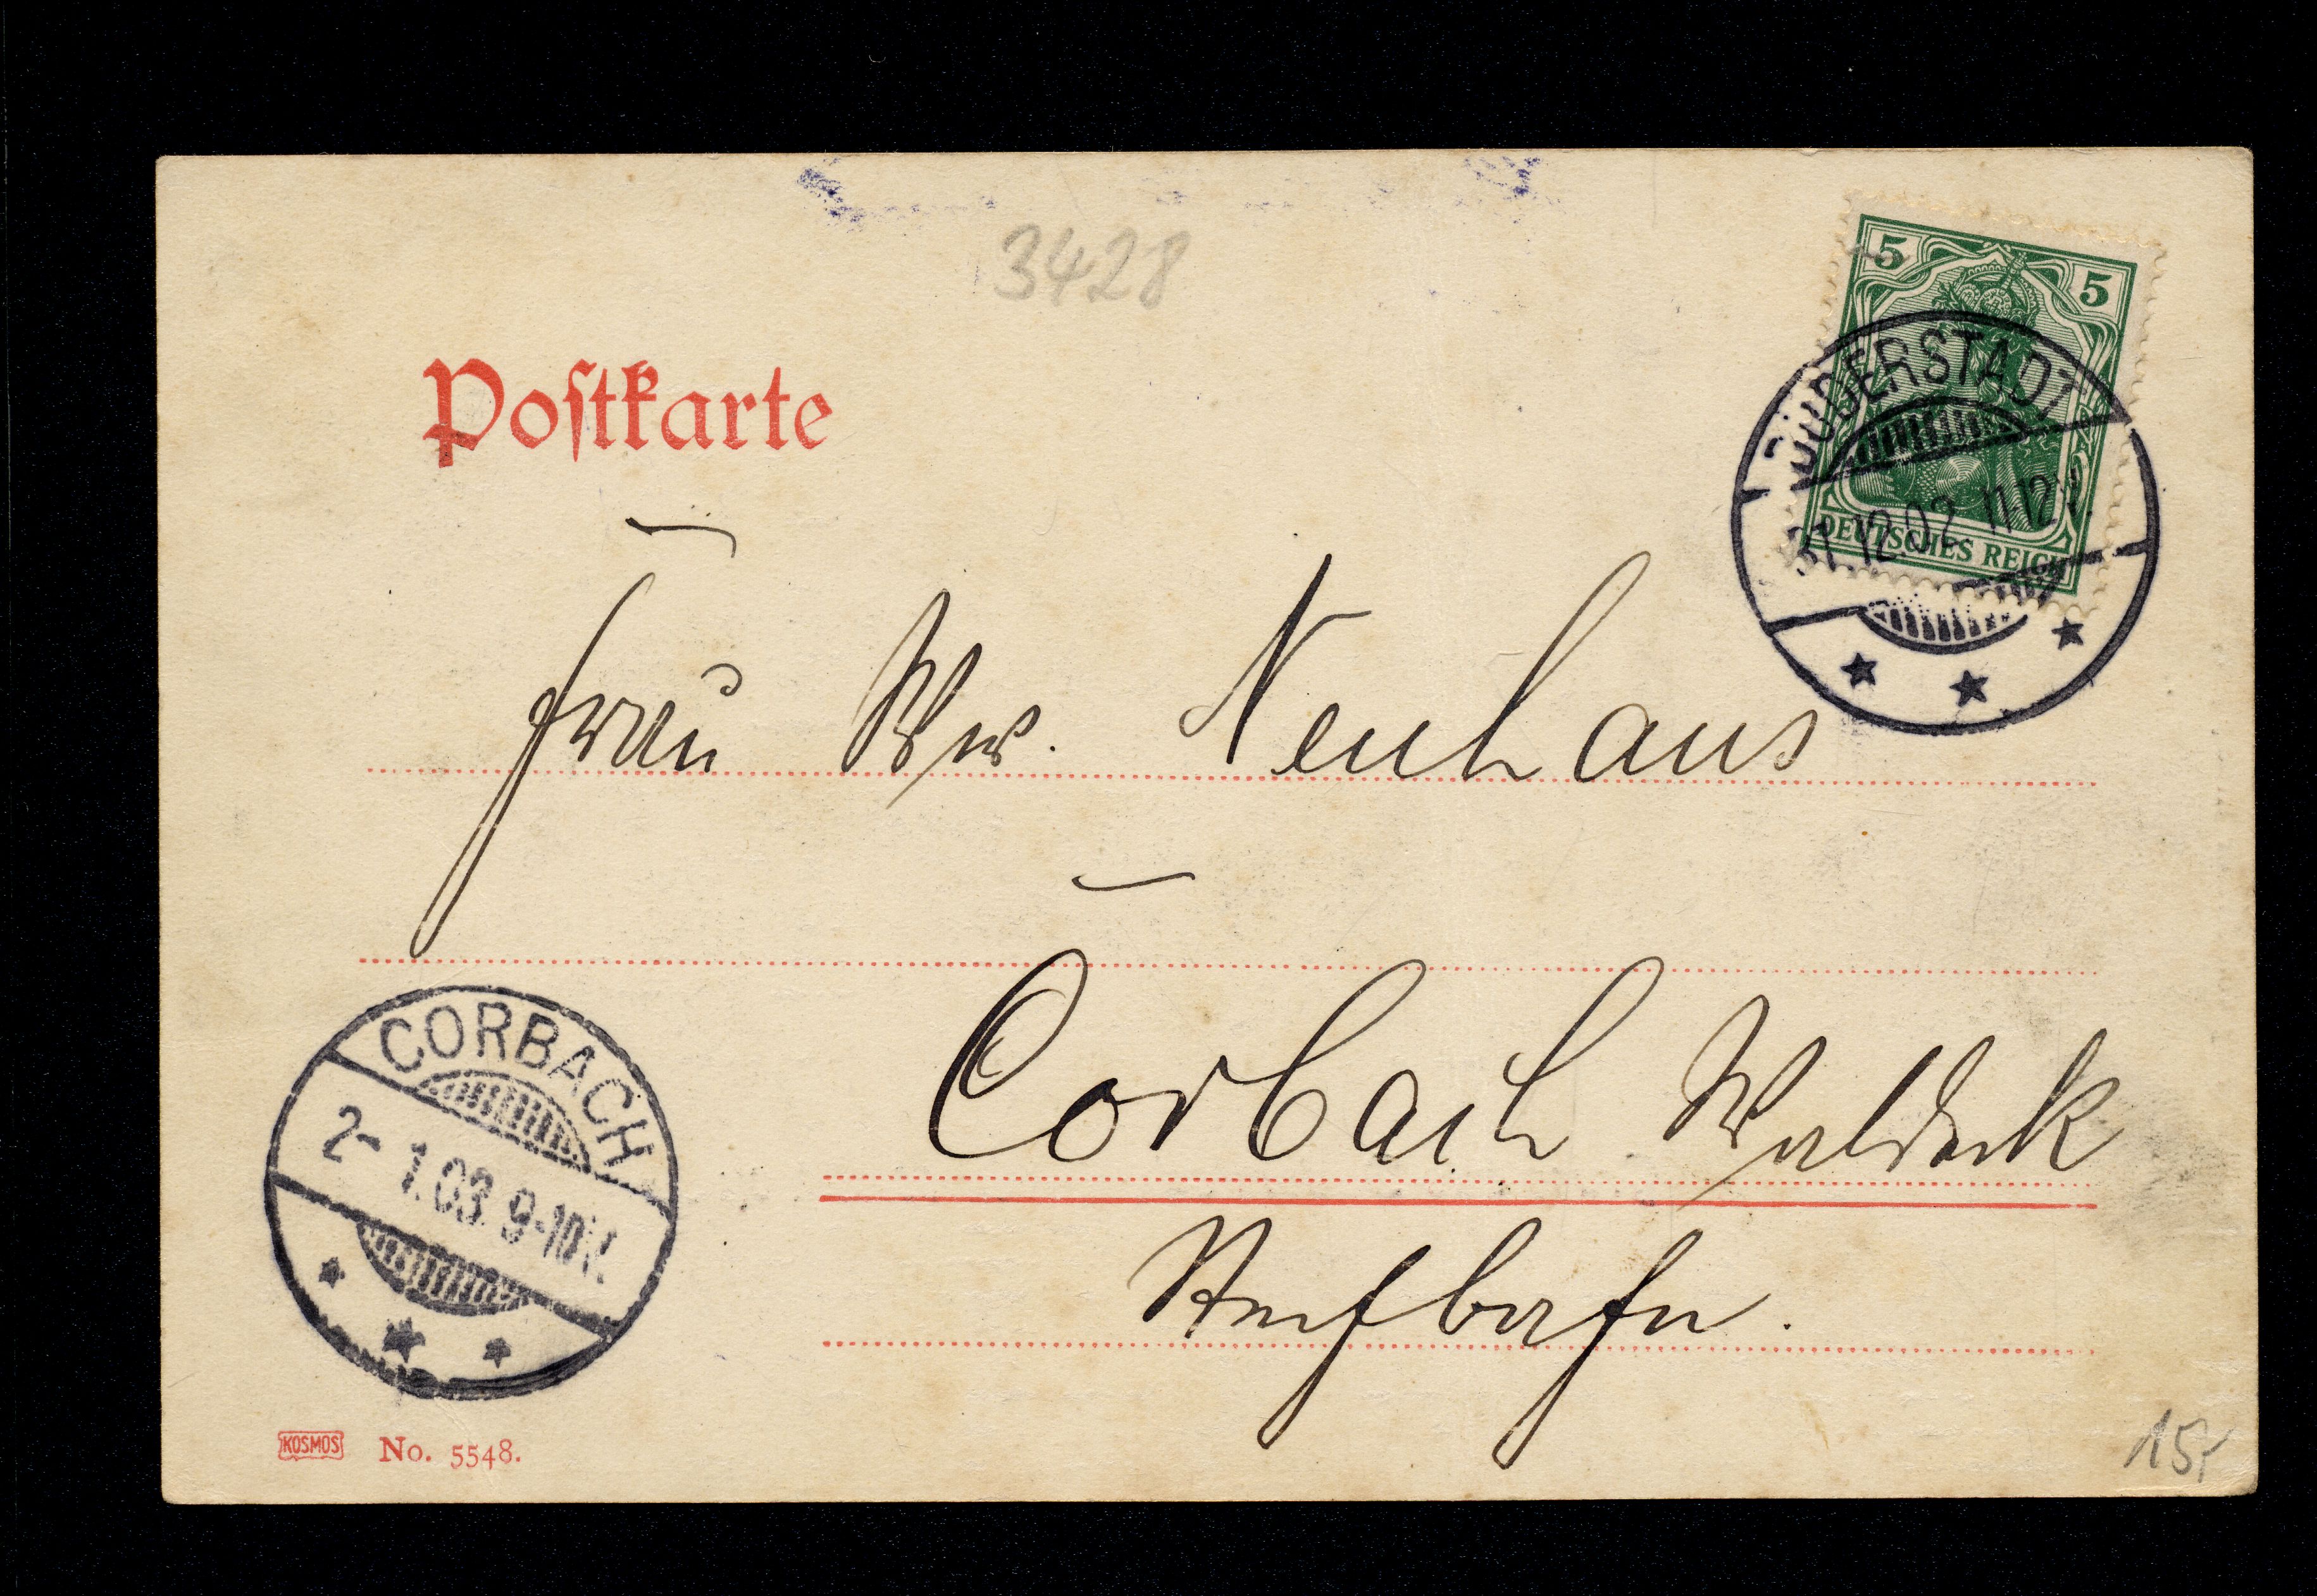 3428
5 5
DUDERSTADT
31.12.02. 11-12V.
DEUTSCHES REICH
Postkarte
Frau Ww. Neuhaus
Corbach Waldeck
Stechbahn.
CORBACH
2-1.03. 9-10V.
KOSMOS No. 5548.
15,-